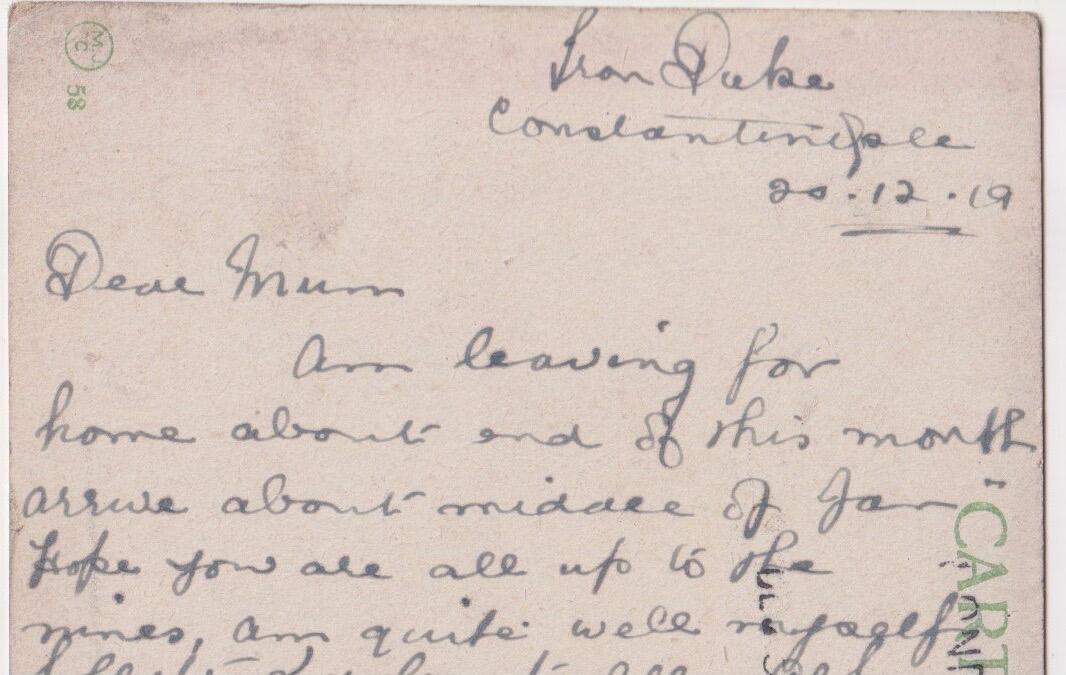 M.J
C
58
Iron Duke
Constantinople
20.12.19
Dear Mum
Am leaving for
home about end of this month
arrive about middle of Jan
Hope you are all up to the
nines, am quite well myself
"CART